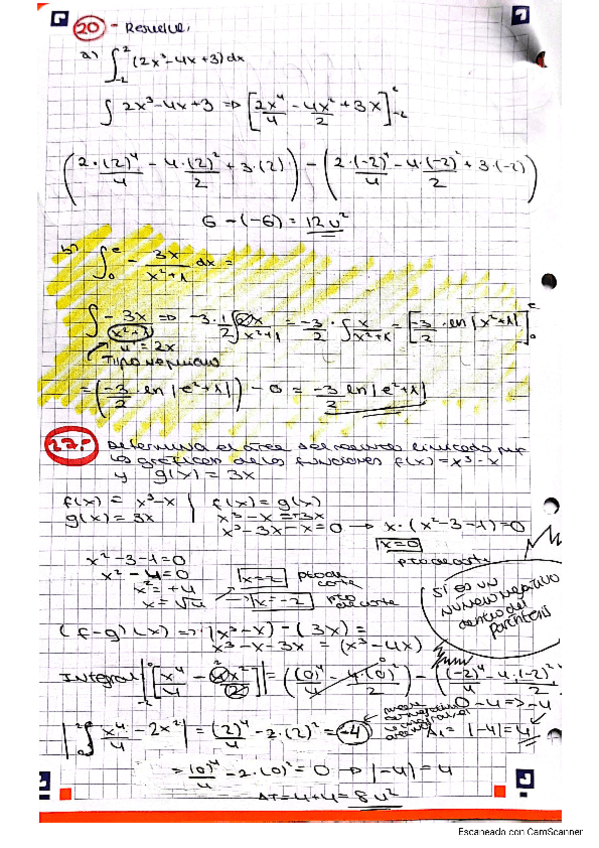 20 - Resuelve,
a) ∫₋₂² (2x³-4x+3)dx
∫ 2x³-4x+3 ⇒ [2x⁴/4 - 4x²/2 + 3x]₋₂²
(2·(2)⁴/4 - 4·(2)²/2 + 3·(2)) - (2·(-2)⁴/4 - 4·(-2)²/2 + 3·(-2))
6-(-6) = 12u²
b) ∫₀ᵉ - 3x/(x²+1) dx =
∫ -3x/(x²+1) ⇒ -3·1/2 ∫ 2x/(x²+1) = -3/2 · ∫ x/(x²+1) = [-3/2 · ln|x²+1|]₀ᵉ
u' = 2x
Tipo neperiano
= (-3/2 · ln|e²+1|) - 0 = -3/2 ln|e²+1|
27.- Determina el área del recinto limitado por
las gráficas de las funciones f(x) = x³-x
y g(x) = 3x
f(x) = x³-x f(x) = g(x)
g(x) = 3x x³-x = 3x
x³-3x-x=0 → x·(x²-3-1)=0
x=0
pto de corte
x²-3-1=0
x²-4=0
x²=+4
x=√4
x=2 pto de corte
x=-2 pto de corte
Si es un número negativo dentro del paréntesis
(f-g)(x) ⇒ (x³-x) - (3x) =
x³-x-3x = (x³-4x)
Integral |₋₂⁰ [x⁴/4 - 4x²/2]| = ((0)⁴/4 - 4·(0)²/2) - ((-2)⁴/4 - 4·(-2)²/2
0-4 => -4
A₁ = |-4| = 4
|∫₀² x⁴/4 - 2x²| = (2)⁴/4 - 2·(2)² = -4
= (0)⁴/4 - 2·(0)² = 0 → |-4| = 4
AT = 4+4 = 8u²
Escaneado con CamScanner